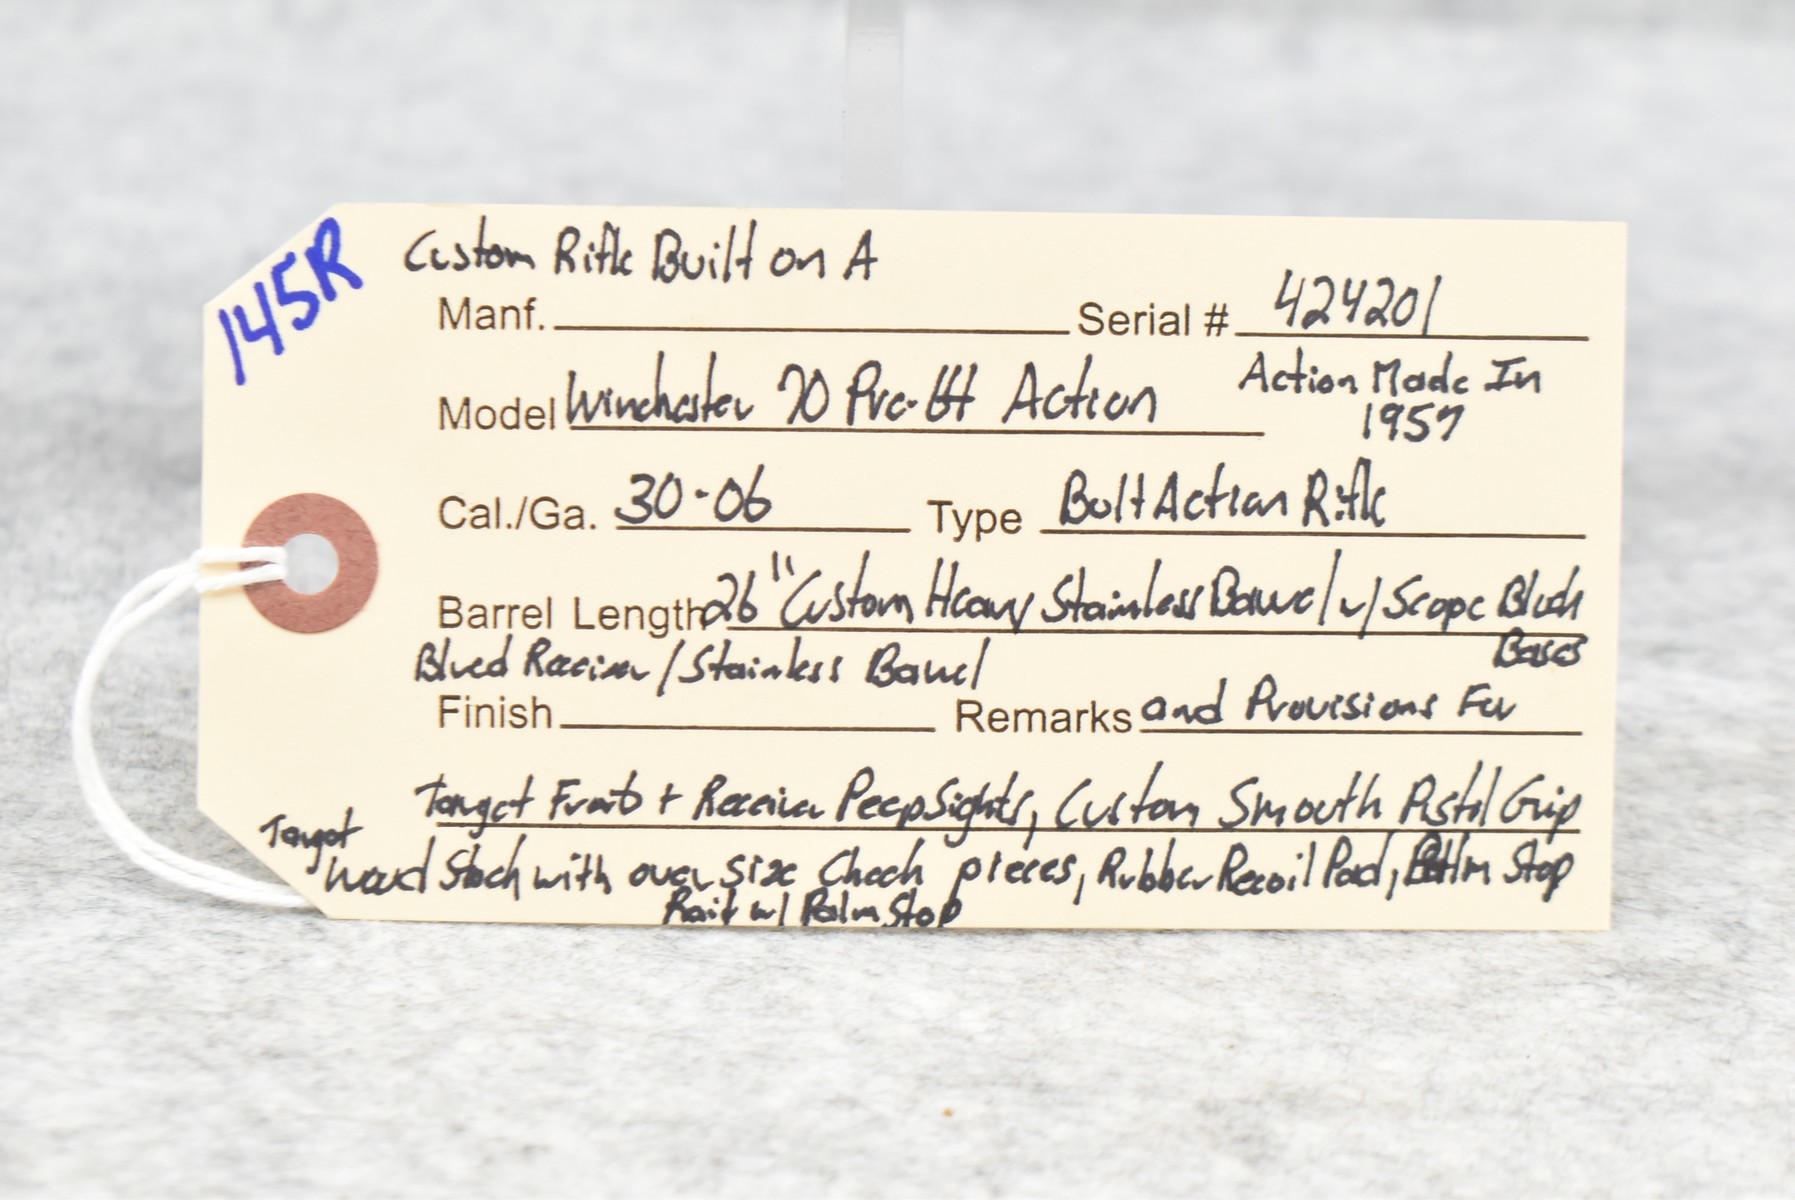 145R
Custom Rifle Built on A
Manf. Serial # 424201
Model Winchester 70 Pre-64 Action Action Made In
1957
Cal./Ga. 30-06 Type Bolt Action Rifle
Barrel Length 26" Custom Heavy Stainless Barrel w/ Scope Block
Bases
Blued Receiver/Stainless Barrel
Finish Remarks and Provisions For
Target Front + Receiver Peep Sights, Custom Smooth Pistol Grip
Target
Wood Stock with over size Cheek pieces, Rubber Recoil Pad, Stop
Rail w/ Palm Stop